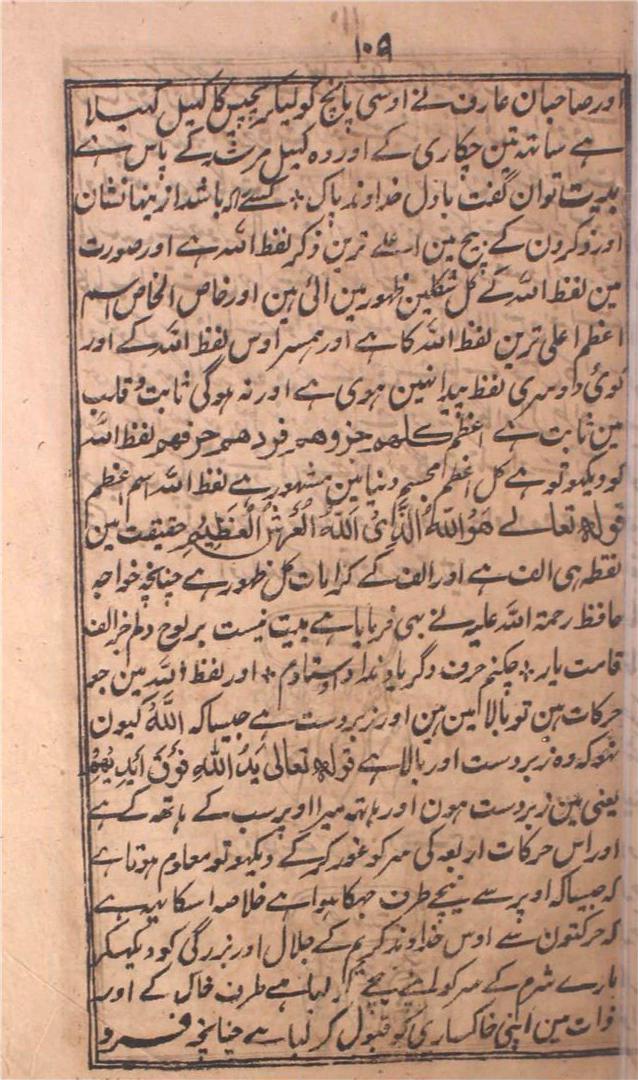 ۱۰۹
اور صاحبان عارف نے اوسی پانچ کو لیکر پچیس کا کہیل کہیلا
ہے ساتھ تین چکاری کے اور وہ کہیل مرشد کے پاس ہے
بیت توان گفت با دل خداوند پاک * کسے کہ باشد از ینہا نشان
اور ذکرون کے بیچ مین اعلے ترین ذکر لفظ اللہ ہے اور صورت
مین لفظ اللہ کے کل شکلین ظہور مین آئی ہین اور خاص الخاص اسم
اعظم اعلی ترین لفظ اللہ کا ہے اور ہمسر اوس لفظ اللہ کے اور
کوئی دوسری لفظ پیدا نہین ہوی ہے اور نہ ہوگی ثابت و قلب
مین ثابت ہے اعظم کلہم جزوہم فردہم حرفہم لفظ اللہ
کو دیکہو تو ہے کل اعظم مجسم دنیا مین مشہور ہے لفظ اللہ اسم اعظم
قولہ تعالے ہُوَ اللّٰہُ الَّذِی اللّٰہُ الْعَرْشُ الْعَظِیْم حقیقت مین
نقطہ ہی الف ہے اور الف کے کرامات کل ظہور ہے چنانچہ خواجہ
حافظ رحمۃ اللہ علیہ نے بہی فرمایا ہے بیت نیست بر لوح دلم جز الف
قامت یار * چکنم حرف دگر یاد نداد اوستادم * اور لفظ اللہ مین جو
حرکات ہین تو بالا مین ہین اور زبردست ہے جیسا کہ اَللّٰہُ کیون
نہو کہ وہ زبردست اور بالا ہے قولہ تعالی یَدُ اللّٰہِ فَوْقَ اَیْدِیْہِمْ
یعنی مین زبردست ہون اور ہاتہ میرا اوپر سب کے ہاتھ کے ہے
اور اس حرکات اربعہ کی سر کو غور کر کے دیکہو تو معلوم ہوتا ہے
کہ جیسا کہ اوپر سے نیچے طرف جہکا ہوا ہے خلاصہ اسکا یہہ ہے
کہ حرکتون سے اوس خداوند کریم کے جلال اور بزرگی کو دیکہکر
مارے شرم کے سر کو اپنے نیچے کر لیا ہے طرف خاک کے اور
ذات مین اپنی خاکساری کو قبول کر لیا ہے چنانچہ فرو